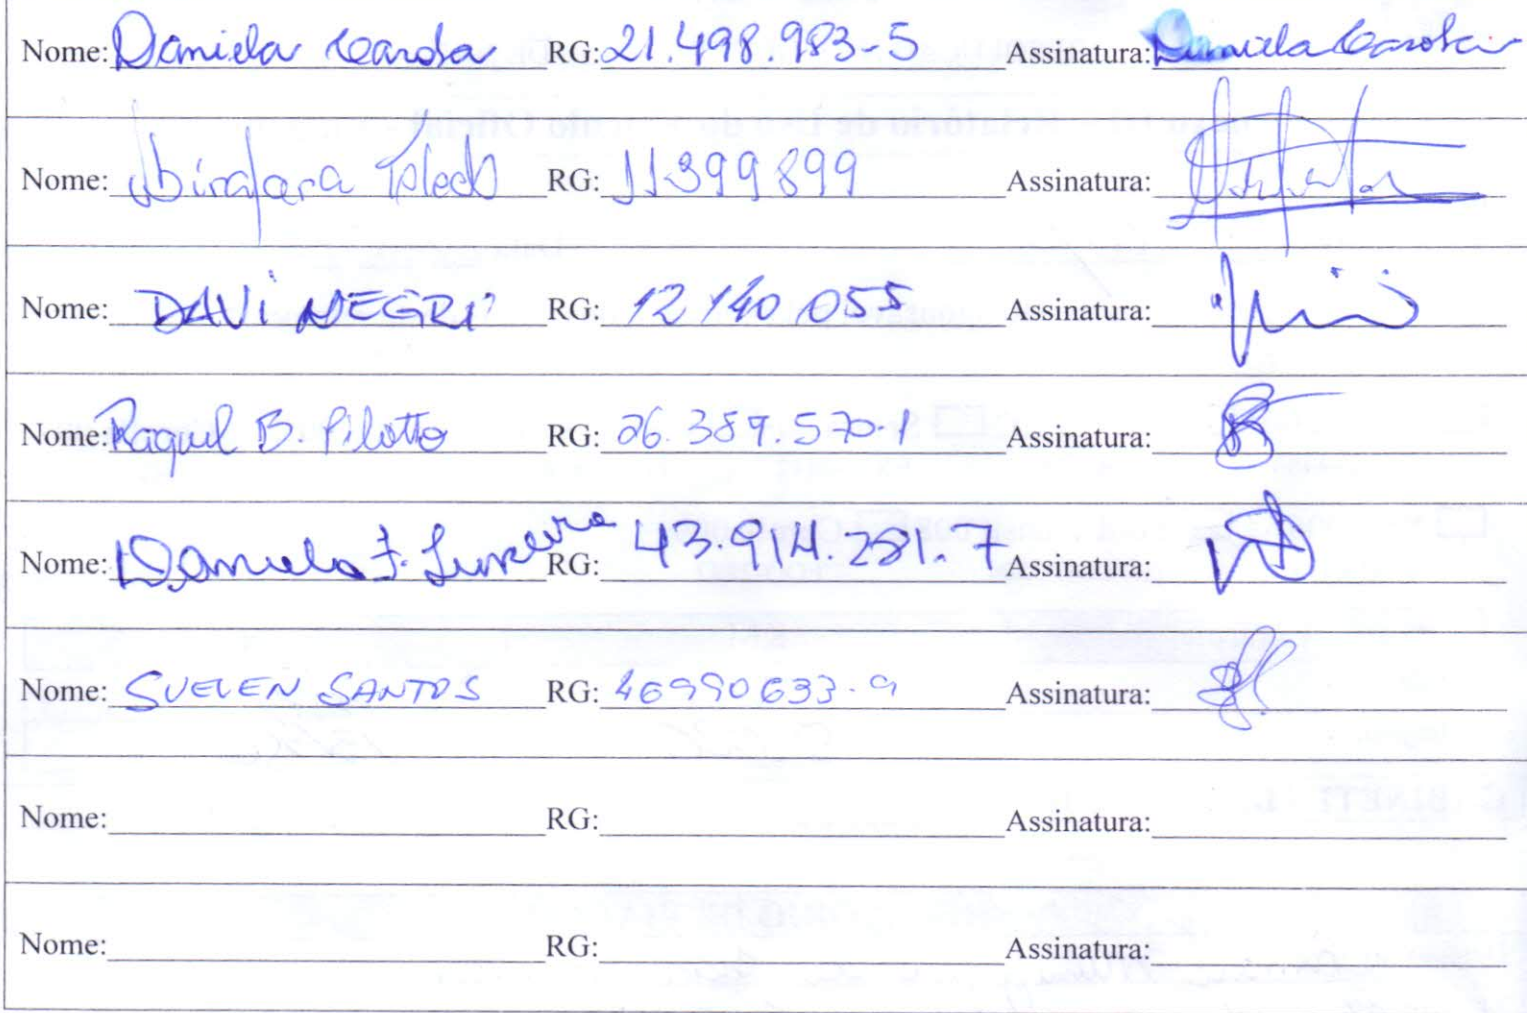 Nome: Daniela RG: 21.498.983-5 Assinatura: Daniela
Nome: Ubirajara Toledo RG: 11399899 Assinatura:
Nome: DAVI NEGRI RG: 12 140 055 Assinatura:
Nome: Raquel B. Pilotto RG: 26.389.570-1 Assinatura:
Nome: Daniela F. RG: 43.914.281-7 Assinatura:
Nome: SUELEN SANTOS RG: 46990633-9 Assinatura:
Nome: RG: Assinatura:
Nome: RG: Assinatura: